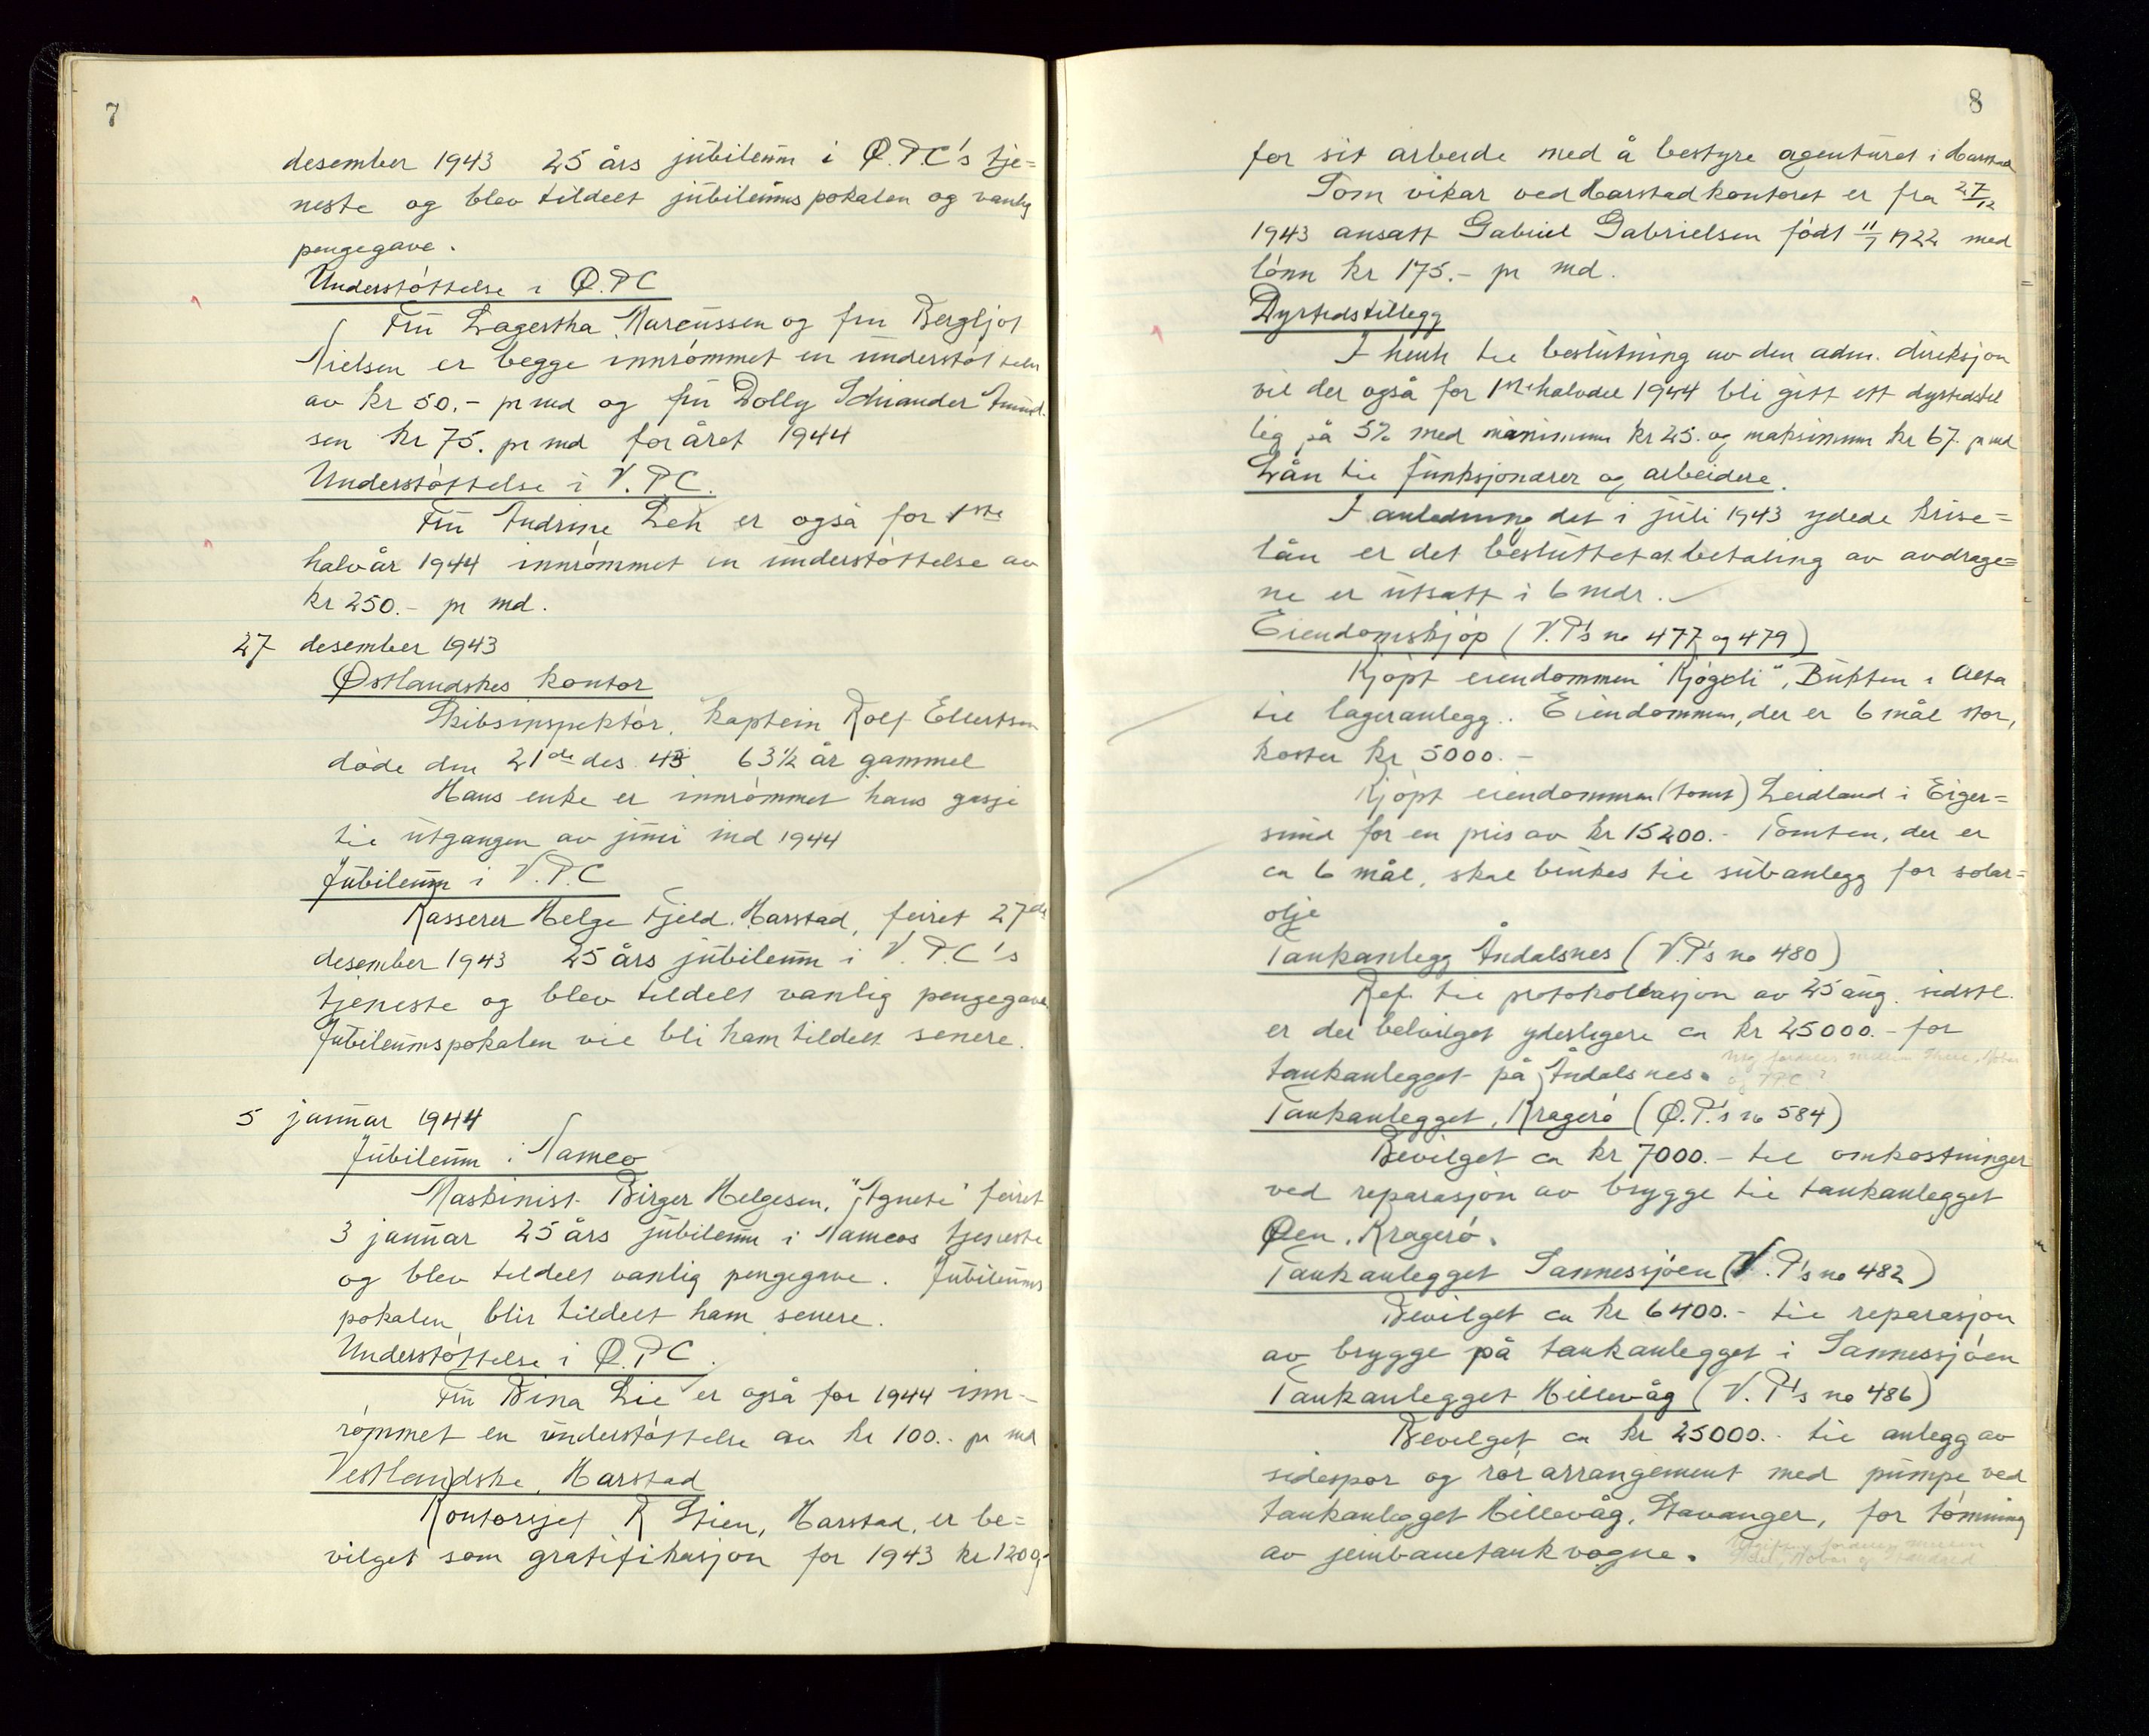 7
desember 1943 25 års jubileum i Ø.P.C's tje=
neste og blev tildelt jubileumspokalen og vanlig
pengegave.
Understøttelse i Ø.P.C
Fru Lagertha Marcussen og fru Bergljot
Nielsen er begge innrømmet en understøttelse
av kr 50.- pr md og fru Dolly Schiander Amund-
sen kr 75. pr md for året 1944
Understøttelse i V.P.C.
Fru Andrine Leh er også for 1ste
halvår 1944 innrømmet en understøttelse av
kr 250.- pr md.
27 desember 1943
Østlandskes kontor
Skibsinspektør, kaptein Rolf Ellertsen
døde den 21de des. 43 63 1/2 år gammel
Hans enke er innrømmet hans gasje
til utgangen av juni md 1944
Jubileum i V.P.C
Kasserer Helge Fjeld, Harstad, feiret 27de
desember 1943 25 års jubileum i V.P.C's
tjeneste og blev tildelt vanlig pengegave
Jubileumspokalen vil bli ham tildelt senere.
5 januar 1944
Jubileum i Nameo
Maskinist Birger Helgesen, "Agnete" feiret
3 januar 25 års jubileum i Nameos tjeneste
og blev tildelt vanlig pengegave. Jubileums
pokalen blir tildelt ham senere.
Understøttelse i Ø.P.C.
Fru Dina Lie er også for 1944 inn-
rømmet en understøttelse av kr 100.- pr md
Vestlandske, Harstad
Kontorsjef R Stien, Harstad, er be=
vilget som gratifikasjon for 1943 kr 1200.-
8
for sit arbeide med å bestyre agenturet i Harstad
Som vikar ved Harstadkontoret er fra 27/12
1943 ansatt Gabriel Gabrielsen født 11/7 1922 med
lønn kr 175.- pr md.
Dyrtidstillegg
I henh til beslutning av den adm. direksjon
vil der også for 1ste halvdel 1944 bli gitt ett dyrtidstil
leg på 5% med minimum kr 25. og maksimum kr 67. pr md
Lån til funksjonærer og arbeidere.
I anledning det i juli 1943 ydede krise=
lån er det besluttet at betaling av avdrage=
ne er utsatt i 6 mdr.
Eiendomskjøp (V.P's no 477 og 479)
Kjøpt eiendommen "Kjøgeli", Bukten i Alta
til lageranlegg. Eiendommen, der er 6 mål stor,
koster kr 5000.-
Kjøpt eiendommen (tomt) Leidland i Eiger=
sund for en pris av kr 15200.- Tomten, der er
ca 6 mål, skal brukes til subanlegg for solar=
olje
Tankanlegg Åndalsnes (V.P's no 480)
Ref. til protokollasjon av 25 aug. sidstl.
er der belvilget yderligere ca kr 25000.- for
tankanlegget på Åndalsnes.
Tankanlegget, Kragerø (Ø.P.'s no 584)
Bevilget ca kr 7000.- til omkostninger
ved reparasjon av brygge til tankanlegget
Øen, Kragerø.
Tankanlegget Sannessjøen (V.P's no 482)
Bevilget ca kr 6400.- til reparasjon
av brygge på tankanlegget i Sannessjøen
Tankanlegget Hillevåg (V.P's no 486)
Bevilget ca kr 25000.- til anlegg av
sidespor og rørarrangement med pumpe ved
tankanlegget Hillevåg, Stavanger, for tømning
av jernbanetankvogne.